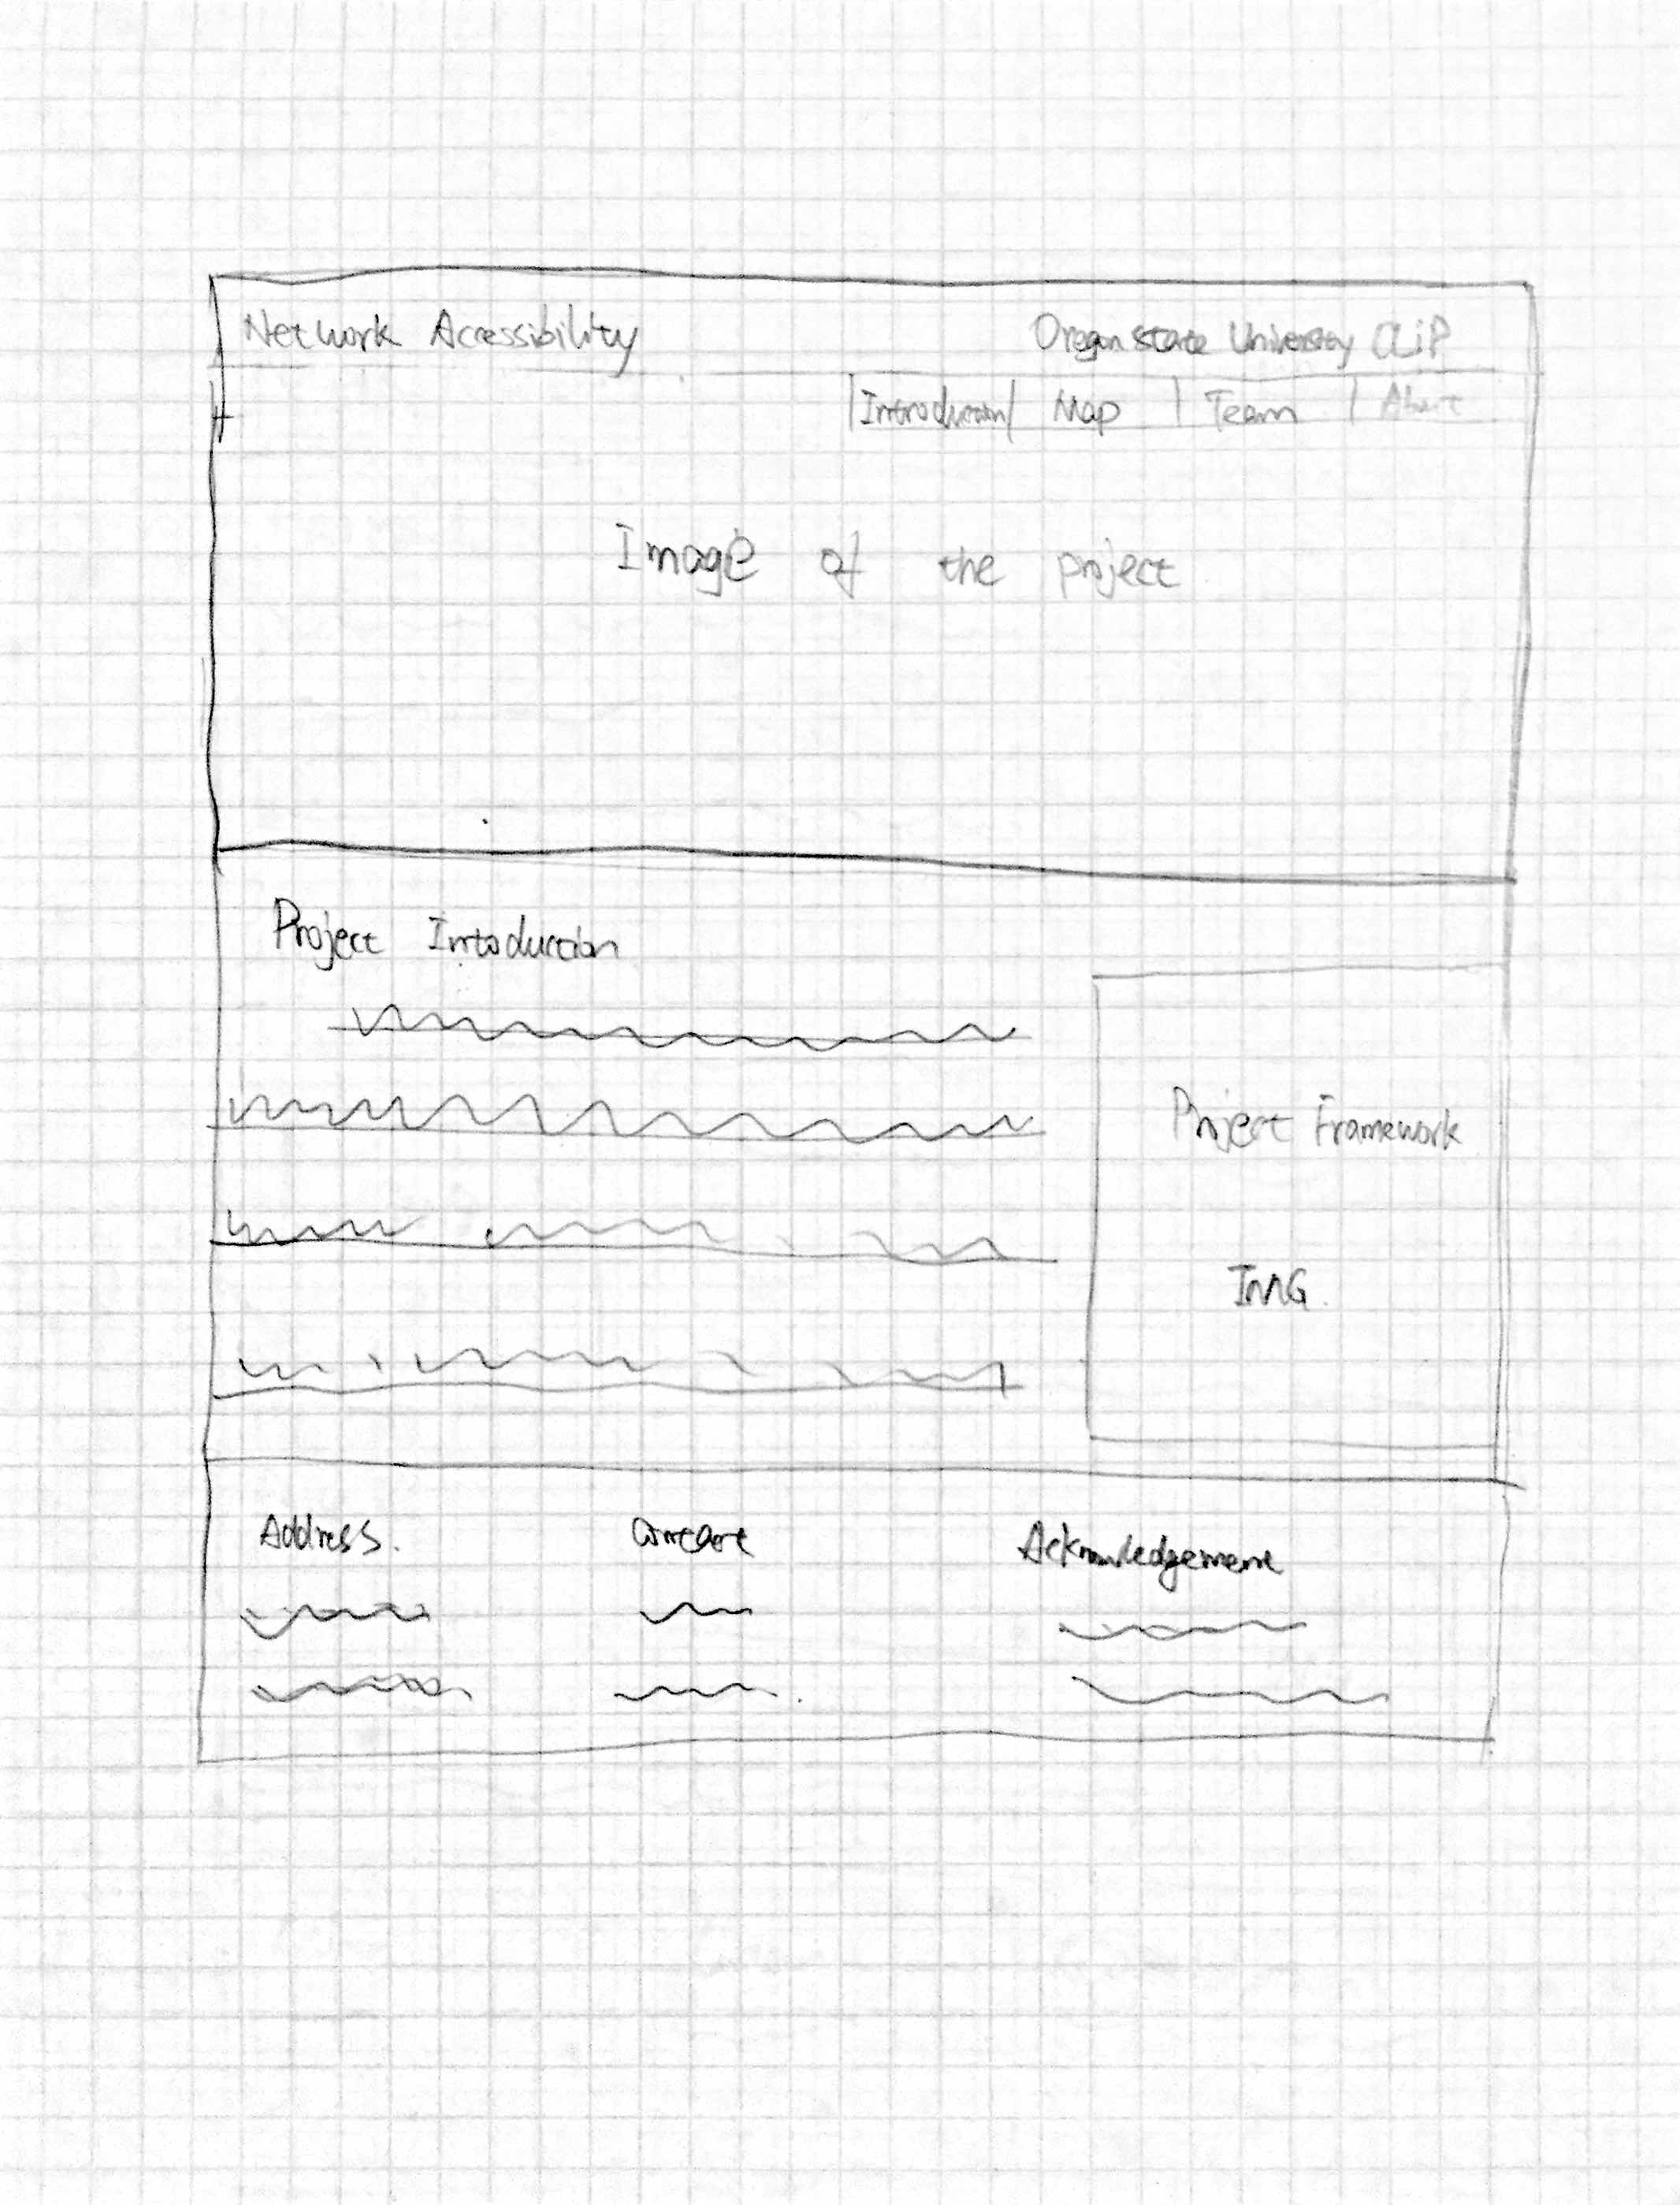 Network Accessibility Oregon State University CLiP
Introduction Map Team About
Image of the project
Project Introduction
Project Framework
IMG.
Address. Contact Acknowledgement